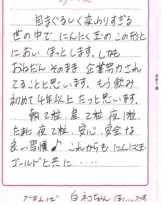 目まぐるしく変わりすぎる
世の中で にんにく玉の この形と
におい ほっとします。しかも
おねだん そのまま 企業努力され
てることと思います。もう飲み
初めて4年以上たったと思います。
朝2粒、昼2粒 夜1粒
たまに夜2粒、安心、安全な
良い習慣♪ これからもにんにく玉
ゴールドと共に・・・・・